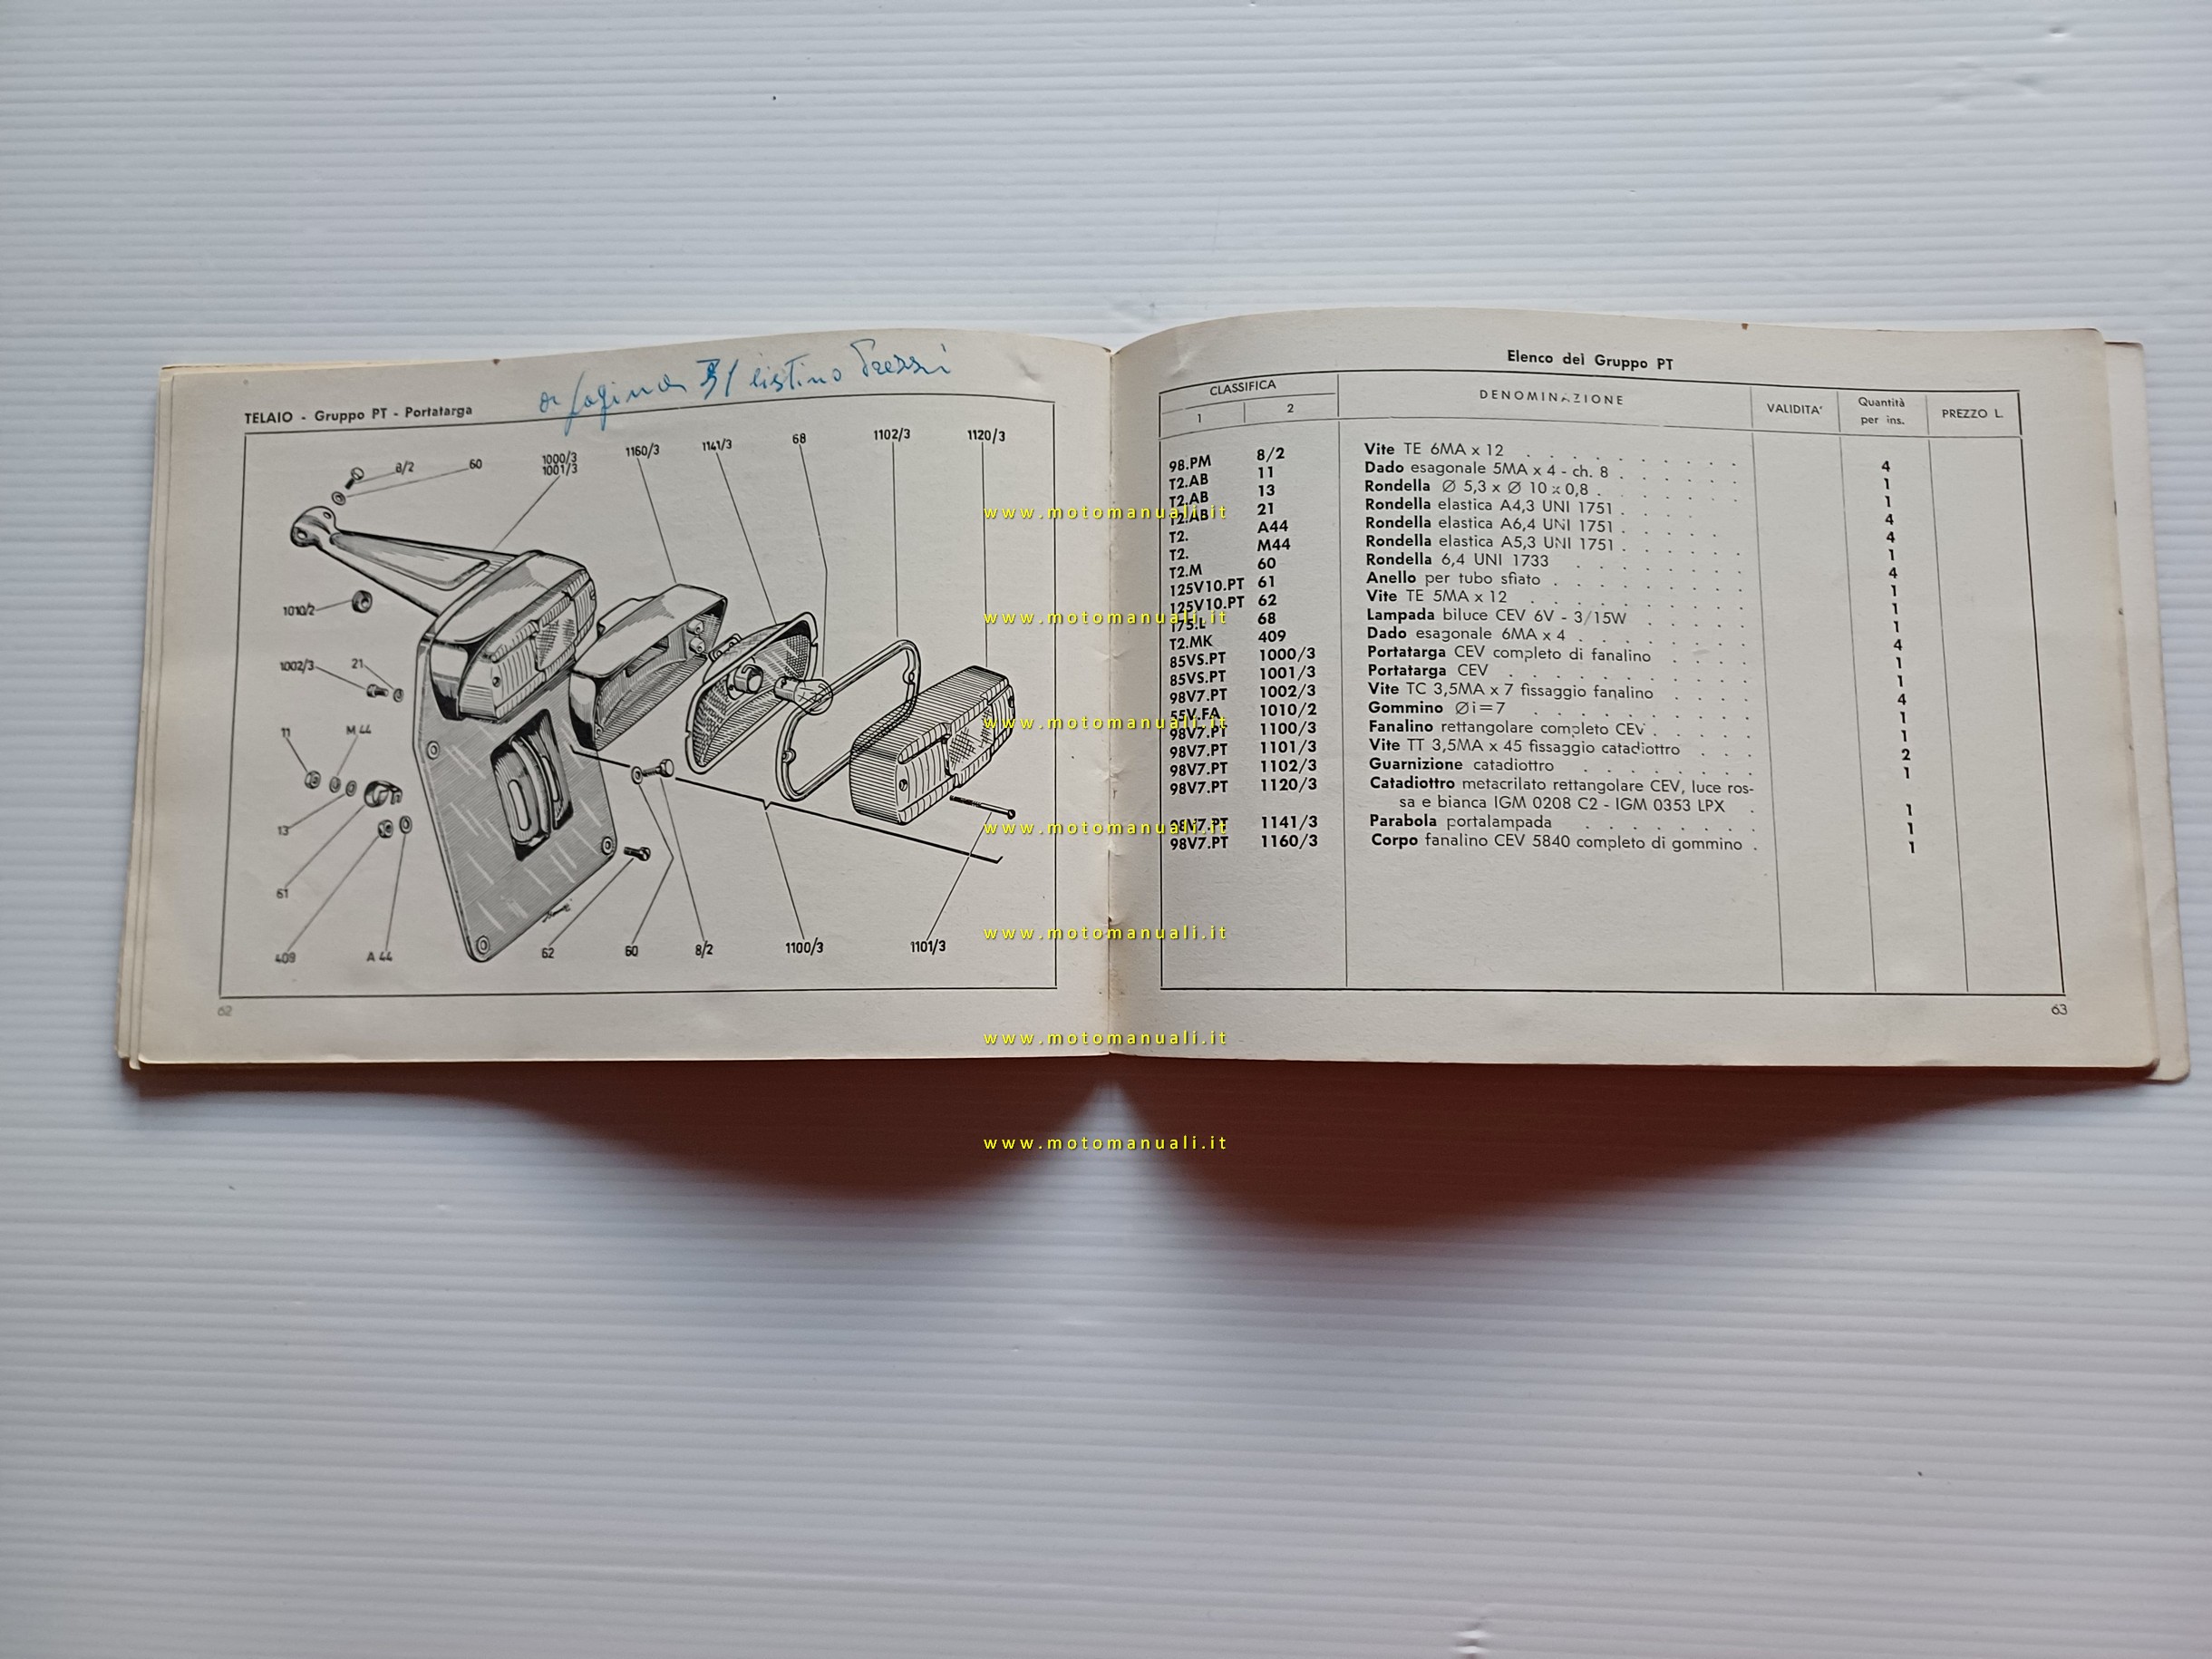 a pagina 31 listino Prezzi
TELAIO - Gruppo PT - Portatarga
8/2
60
1000/3
1001/3
1160/3
1141/3
68
1102/3
1120/3
1010/2
1002/3
21
11
M 44
13
61
409
A 44
62
60
8/2
1100/3
1101/3
62
Elenco del Gruppo PT
CLASSIFICA
1 2
DENOMINAZIONE
VALIDITA'
Quantità
per ins.
PREZZO L.
98.PM 8/2 Vite TE 6MA x 12 4
T2.AB 11 Dado esagonale 5MA x 4 - ch. 8 1
T2.AB 13 Rondella Ø 5,3 x Ø 10 x 0,8 1
T2.AB 21 Rondella elastica A4,3 UNI 1751 4
T2. A44 Rondella elastica A6,4 UNI 1751 4
T2. M44 Rondella elastica A5,3 UNI 1751 1
T2.M 60 Rondella 6,4 UNI 1733 4
125V10.PT 61 Anello per tubo sfiato 1
125V10.PT 62 Vite TE 5MA x 12 1
175.L 68 Lampada biluce CEV 6V - 3/15W 1
T2.MK 409 Dado esagonale 6MA x 4 4
85VS.PT 1000/3 Portatarga CEV completo di fanalino 1
85VS.PT 1001/3 Portatarga CEV 1
98V7.PT 1002/3 Vite TC 3,5MA x 7 fissaggio fanalino 4
55V.FA 1010/2 Gommino Øi=7 1
98V7.PT 1100/3 Fanalino rettangolare completo CEV 1
98V7.PT 1101/3 Vite TT 3,5MA x 45 fissaggio catadiottro 2
98V7.PT 1102/3 Guarnizione catadiottro 1
98V7.PT 1120/3 Catadiottro metacrilato rettangolare CEV, luce ros-
sa e bianca IGM 0208 C2 - IGM 0353 LPX 1
98V7.PT 1141/3 Parabola portalampada 1
98V7.PT 1160/3 Corpo fanalino CEV 5840 completo di gommino 1
63
www.motomanuali.it
www.motomanuali.it
www.motomanuali.it
www.motomanuali.it
www.motomanuali.it
www.motomanuali.it
www.motomanuali.it